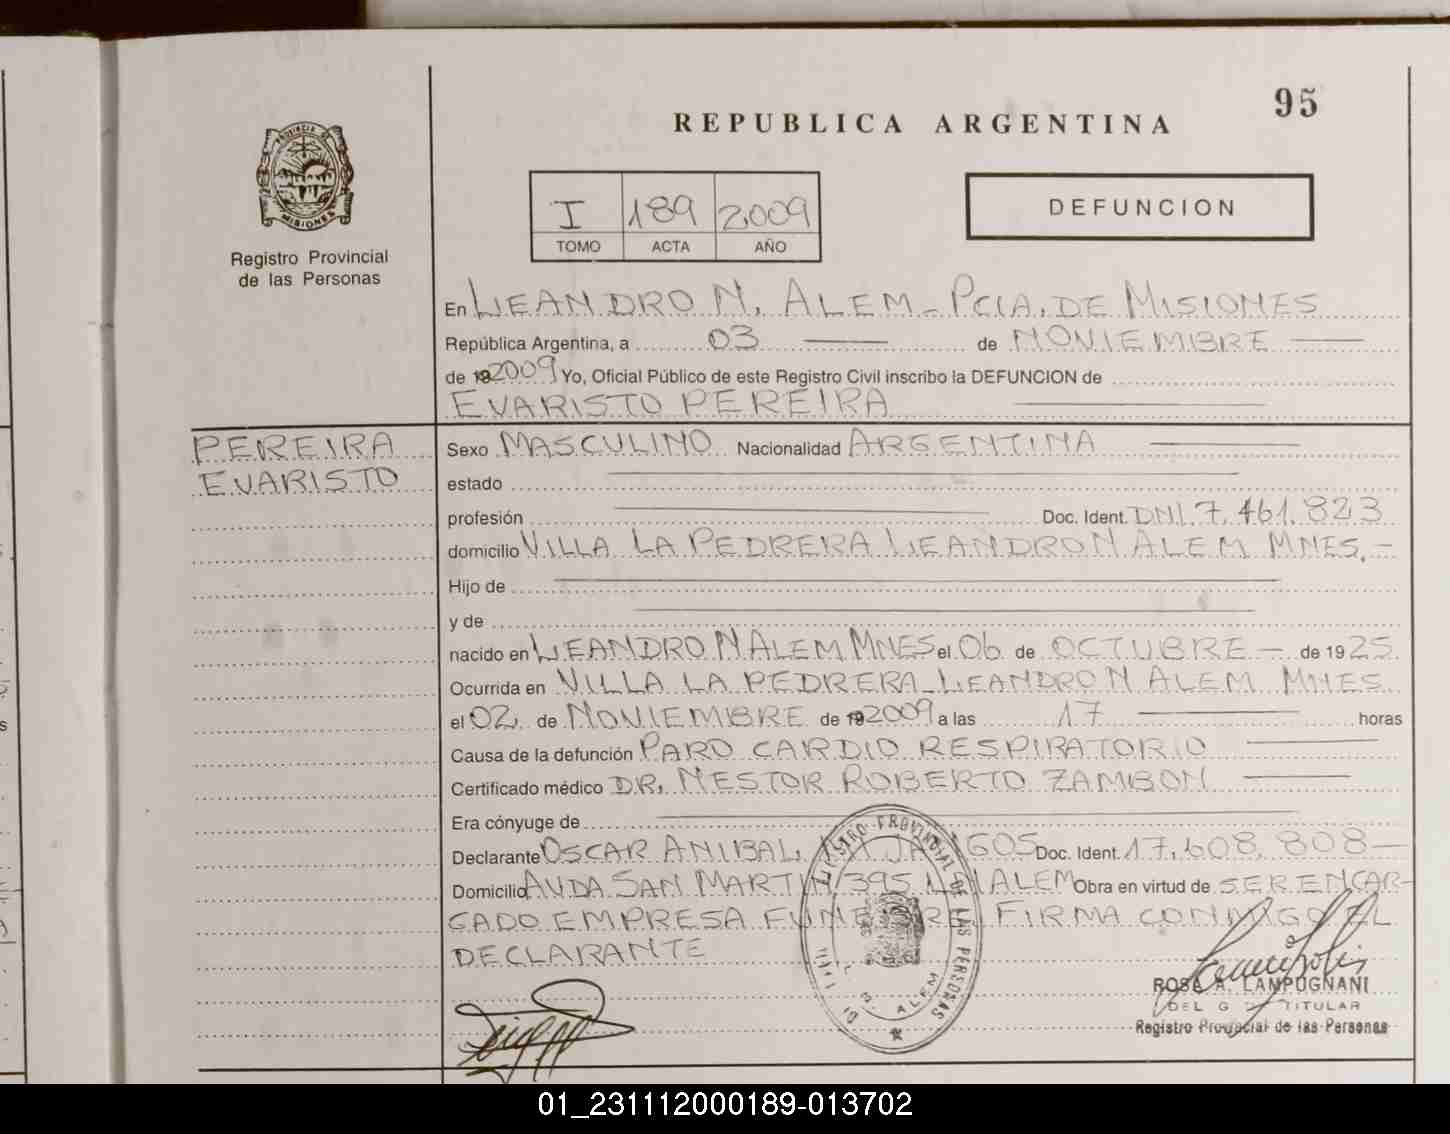 95
REPUBLICA ARGENTINA
PROVINCIA DE
MISIONES
Registro Provincial
de las Personas
I 189 2009
TOMO ACTA AÑO
DEFUNCION
En LEANDRO N. ALEM - PCIA. DE MISIONES
República Argentina, a 03 de NOVIEMBRE
de 192009 Yo, Oficial Público de este Registro Civil inscribo la DEFUNCION de
EVARISTO PEREIRA
PEREIRA
EVARISTO
Sexo MASCULINO Nacionalidad ARGENTINA
estado
profesión Doc. Ident. DNI. 7.461.823
domicilio VILLA LA PEDRERA LEANDRO N ALEM MNES.-
Hijo de
y de
nacido en LEANDRO N ALEM MNES el 06 de OCTUBRE - de 1925
Ocurrida en VILLA LA PEDRERA - LEANDRO N ALEM MNES
el 02 de NOVIEMBRE de 192009 a las 17 horas
Causa de la defunción PARO CARDIO RESPIRATORIO
Certificado médico DR. NESTOR ROBERTO ZAMBON
Era cónyuge de
Declarante OSCAR ANIBAL Doc. Ident. 17.608.808-
Domicilio AVDA SAN MARTIN 1395 L N ALEM Obra en virtud de SER ENCAR-
GADO EMPRESA FUNEBRE FIRMA CONMIGO EL
DECLARANTE
REGISTRO PROVINCIAL DE LAS PERSONAS
L. N. ALEM
ROSA A. LAMPUGNANI
DELEG TITULAR
Registro Provincial de las Personas
01_231112000189-013702